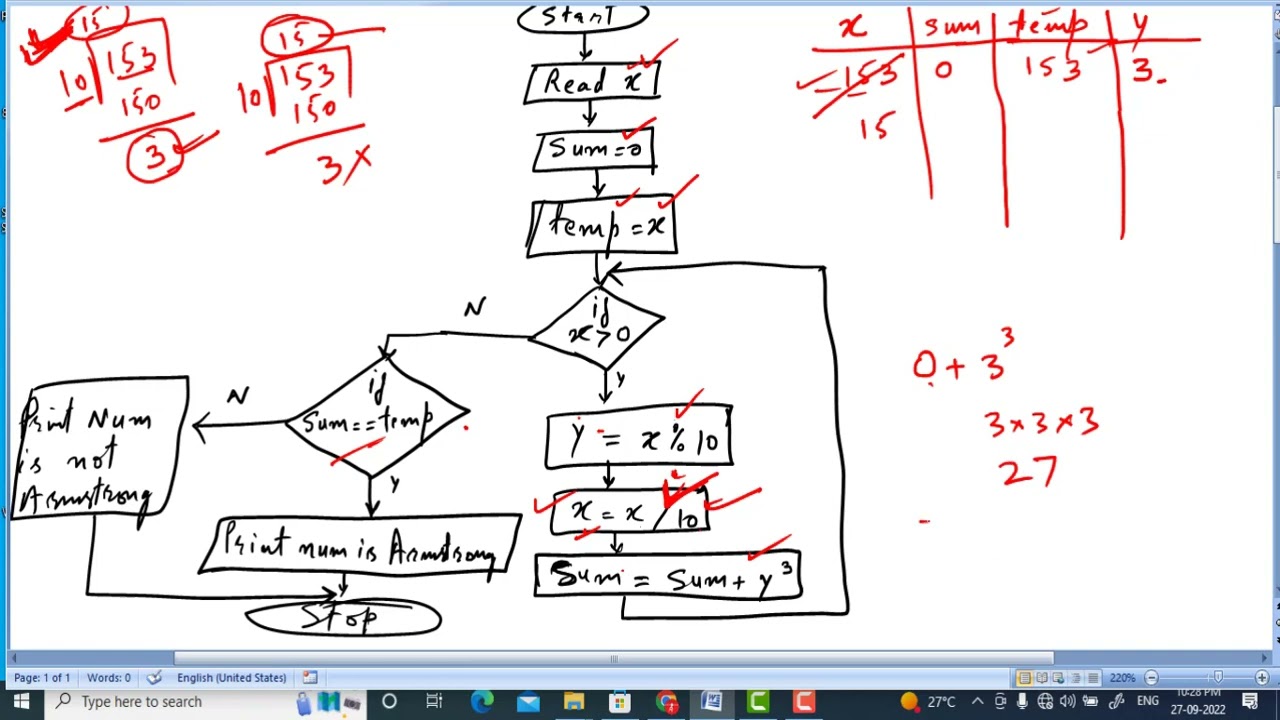 15
10 153
150
3
15
10 153
150
3
Start
Read x
Sum=0
temp=x
if
x>0
N
Y
y = x % 10
x = x / 10
Sum = Sum + y³
if
Sum==temp
N
Y
Print Num
is not
Armstrong
Print num is Armstrong
Stop
x sum temp y
153 0 153 3
15
0 + 3³
3×3×3
27
Page: 1 of 1 Words: 0 English (United States) 220%
Type here to search 27°C ENG 10:28 PM
27-09-2022